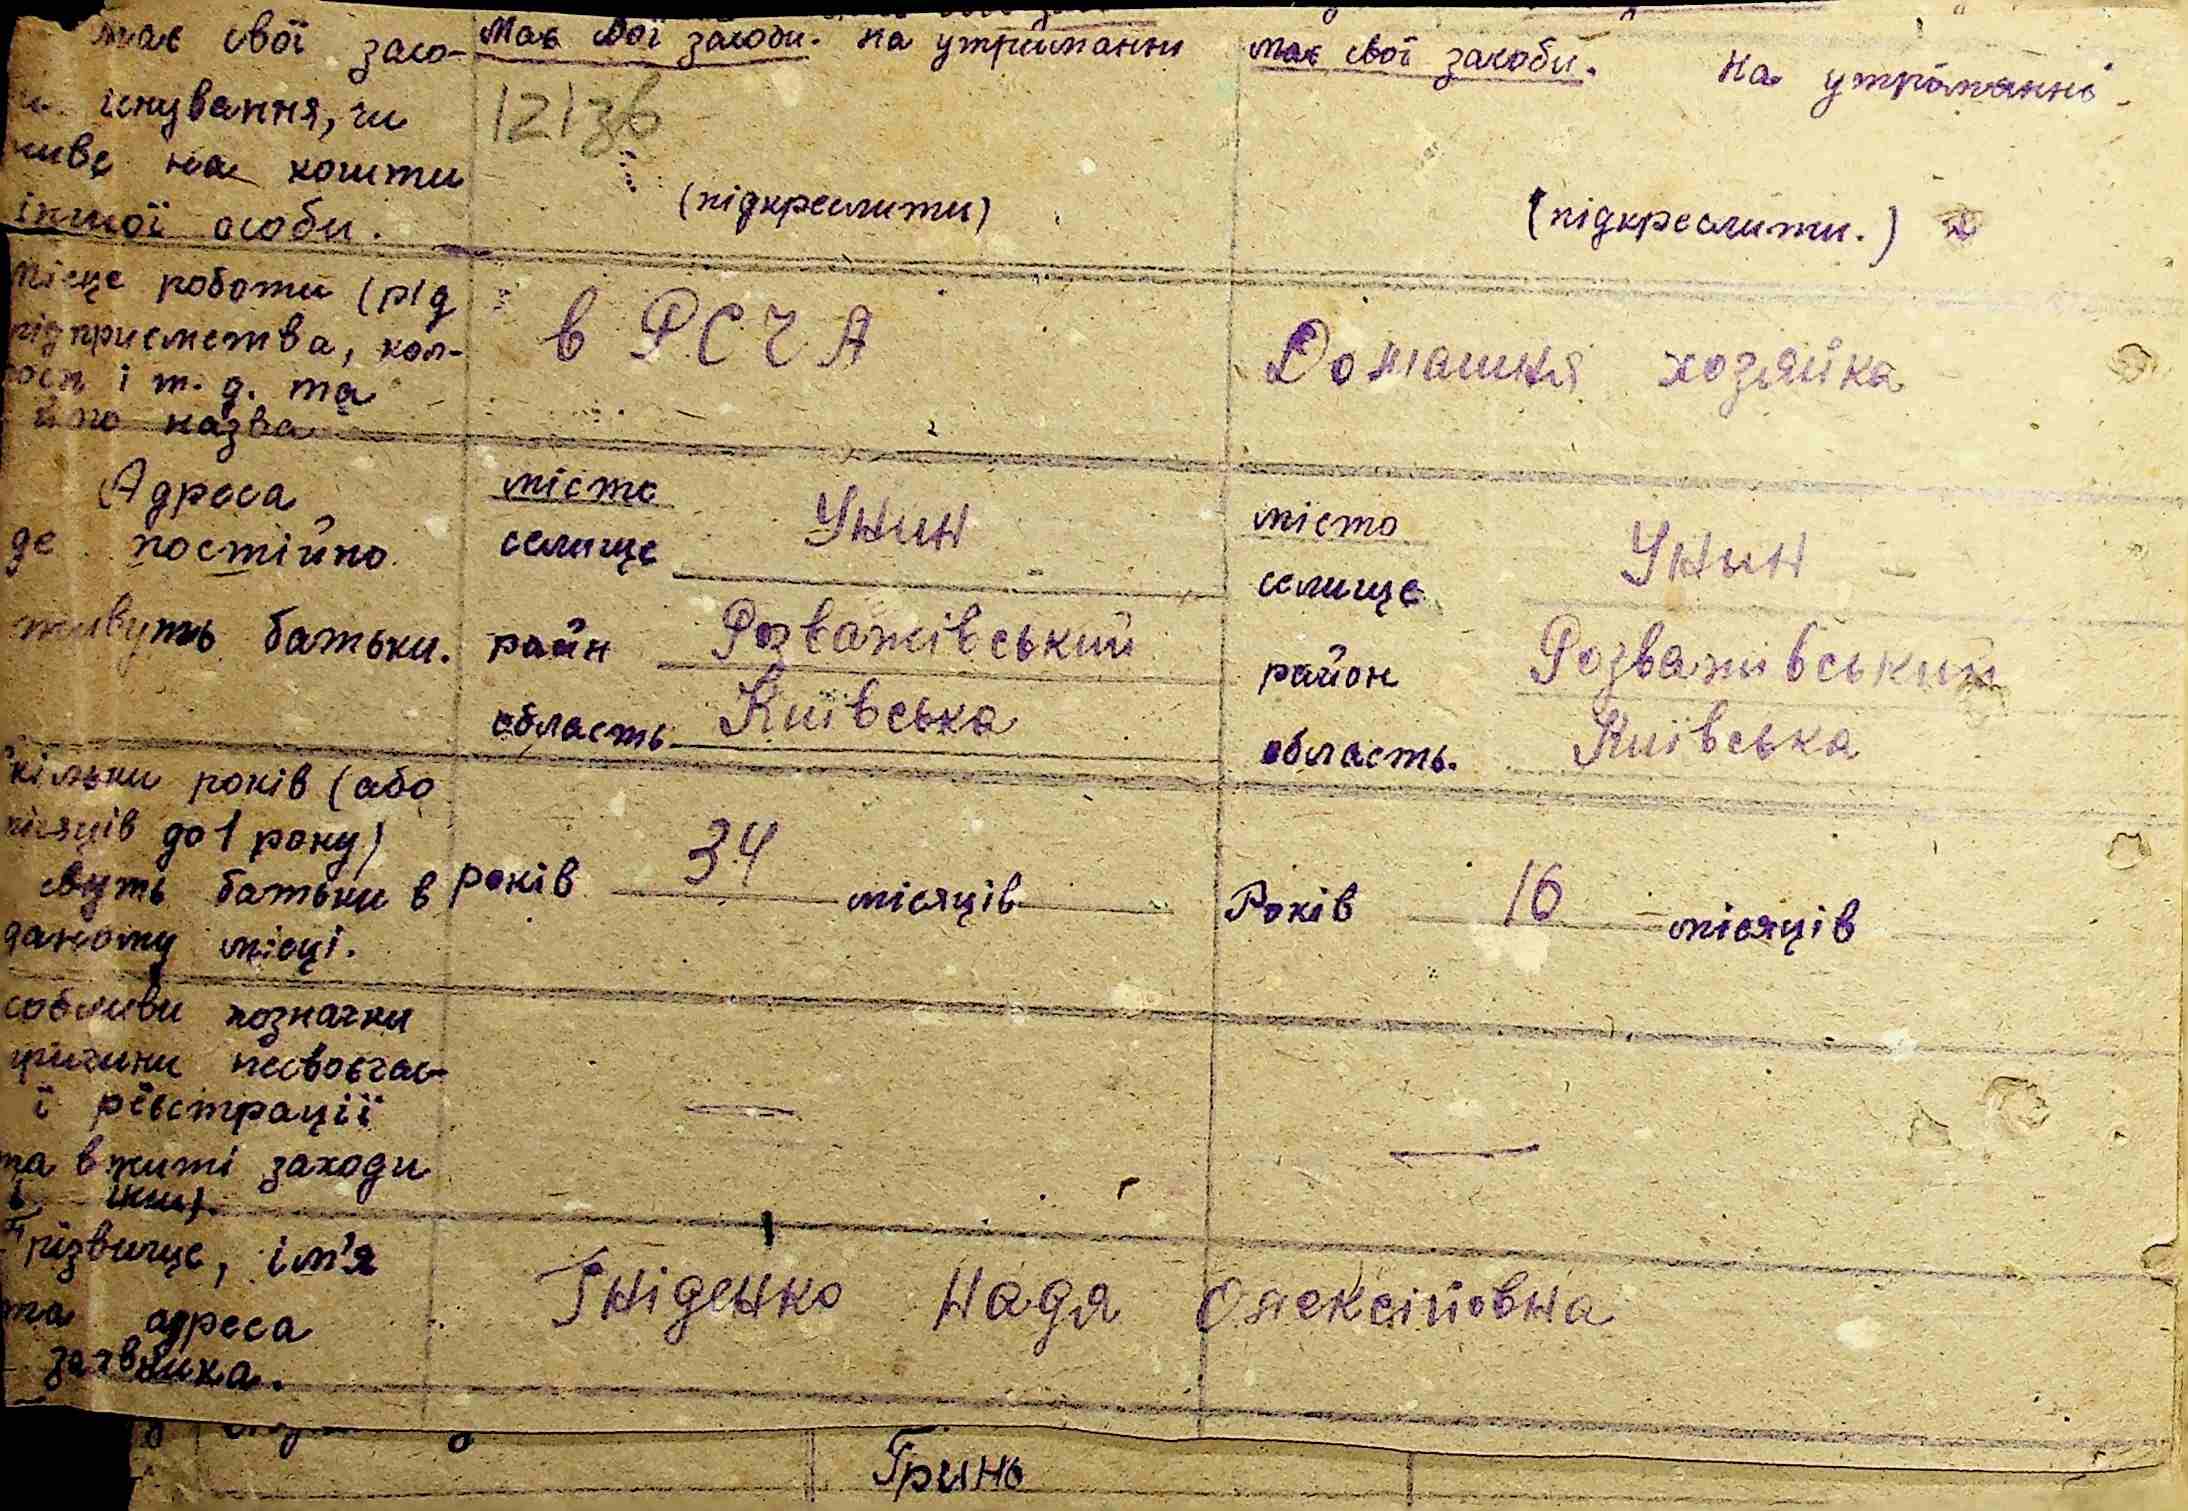 має свої засо- має свої засоби. на утриманні має свої засоби. На утриманні.
існування, чи 121зв
живе на кошти
іншої особи. (підкреслити) (підкреслити.)
місце роботи (рід
підприємства, кол-
госп і т. д. та
його назва
в РСЧА Домашня хозяйка
Адреса
де постійно
живуть батьки.
місто
селище Унин
район Розважівський
область Київська
місто
селище Унын
район Розважівський
область. Київська
скільки років (або
місяців до 1 року)
живуть батьки в
даному місці.
років 34 місяців Років 16 місяців
особливи позначки
причини несвоєчас-
ї реєстрації
та вжиті заходи
і інш).
— —
Прізвище, ім'я
та адреса
заявника.
Гніденко Надя Олексійовна
Гринь